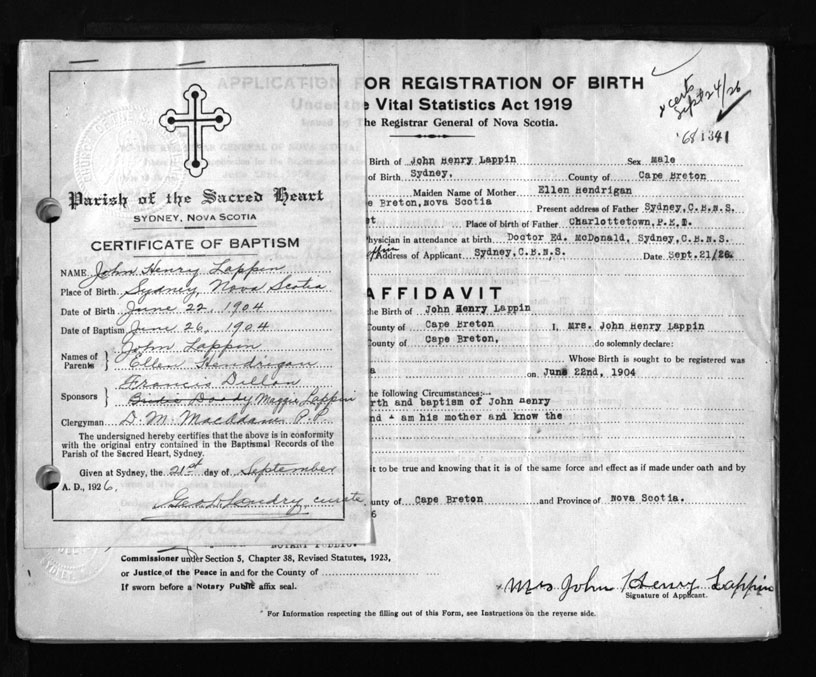 Parish of the Sacred Heart
SYDNEY, NOVA SCOTIA
CERTIFICATE OF BAPTISM
NAME John Henry Lappin
Place of Birth Sydney Nova Scotia
Date of Birth June 22, 1904
Date of Baptism June 26, 1904
Names of Parents } John Lappin
Ellen Hendrigan
Sponsors } Francis Dillon
Birdie Doody Maggie Lappin
Clergyman D. M. MacAdam P.P.
The undersigned hereby certifies that the above is in conformity
with the original entry contained in the Baptismal Records of the
Parish of the Sacred Heart, Sydney.
Given at Sydney, the 21st day of September
A. D., 1926.
Geo Landry curate
APPLICATION FOR REGISTRATION OF BIRTH
Under the Vital Statistics Act 1919
the Registrar General of Nova Scotia.
x certs
Sept 24/26
68 1341
Birth of John Henry Lappin Sex Male
of Birth Sydney, County of Cape Breton
Maiden Name of Mother Ellen Hendrigan
e Breton, Nova Scotia Present address of Father Sydney, C.B.N.S.
st Place of birth of Father Charlottetown, P.E.I.
hysician in attendance at birth Doctor Ed. McDonald, Sydney, C.B.N.S.
Address of Applicant Sydney, C.B.N.S. Date Sept. 21/26.
AFFIDAVIT
the Birth of John Henry Lappin
County of Cape Breton I, Mrs. John Henry Lappin
County of Cape Breton, do solemnly declare:
Whose Birth is sought to be registered was
a on June 22nd, 1904
the following Circumstances:--
rth and baptism of John Henry
nd I am his mother and know the
it to be true and knowing that it is of the same force and effect as if made under oath and by
ounty of Cape Breton and Province of Nova Scotia.
6
NOTARY PUBLIC.
Commissioner under Section 5, Chapter 38, Revised Statutes, 1923,
or Justice of the Peace in and for the County of
If sworn before a Notary Public affix seal.
Mrs John Henry Lappin
Signature of Applicant.
For Information respecting the filling out of this Form, see Instructions on the reverse side.